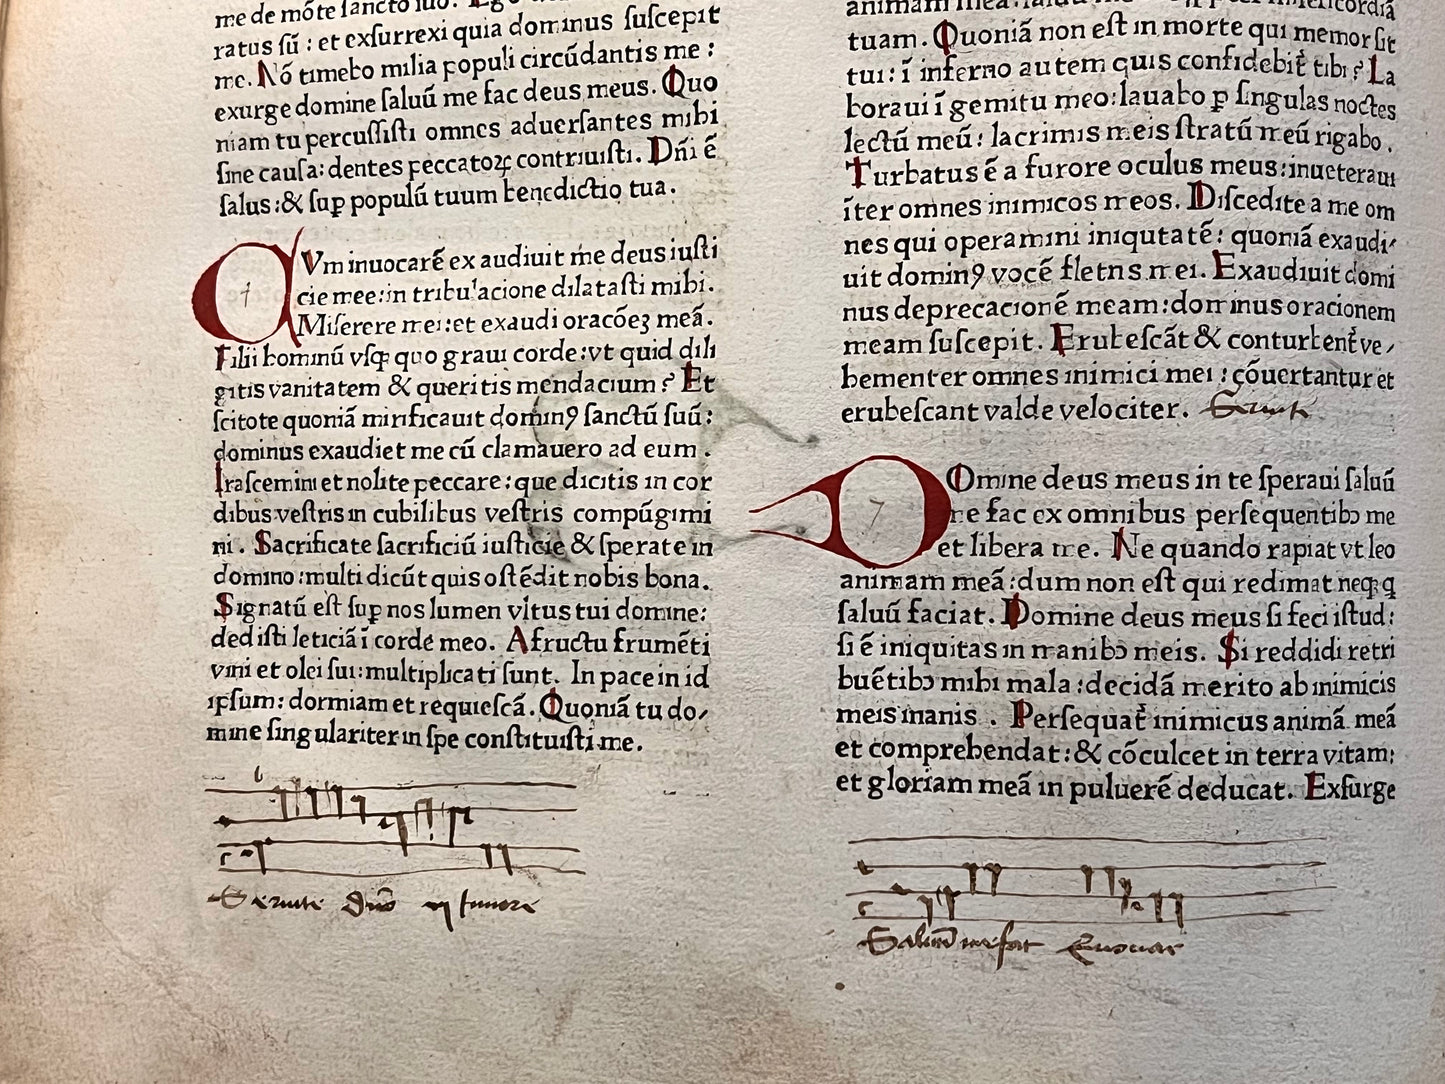 me de mõte sancto suo. Ego
ratus sũ : et exsurrexi quia dominus suscepit
me. Nõ timebo milia populi circũdantis me :
exurge domine saluũ me fac deus meus. Quo
niam tu percussisti omnes aduersantes mihi
sine causa: dentes peccatoꝝ contriuisti. Dñi ẽ
salus :& suꝑ populũ tuum benedictio tua.
CVm inuocarẽ exaudiuit me deus iusti
cie mee: in tribulacione dilatasti mihi.
Miserere mei: et exaudi oracõeʒ meã.
Filii hominũ vsqꝫ quo graui corde: vt quid dili
gitis vanitatem & queritis mendacium ? Et
scitote quoniã mirificauit dominꝰ sanctũ suũ:
dominus exaudiet me cũ clamauero ad eum .
Irascemini et nolite peccare : que dicitis in cor
dibus vestris in cubilibus vestris compũgimi
ni . Sacrificate sacrificiũ iusticie & sperate in
domino : multi dicũt quis ostẽdit nobis bona.
Signatũ est suꝑ nos lumen vltus tui domine:
dedisti leticiã ĩ corde meo. A fructu frumẽti
vini et olei sui: multiplicati sunt. In pace in id
ipsum: dormiam et requiescã. Quoniã tu do⸗
mine singulariter in spe constituisti me.
animam mea
tuam. Quoniã non est in morte qui memor sit
tui: ĩ inferno autem quis confidebit̃ tibi ? La
boraui ĩ gemitu meo: lauabo ꝑ singulas noctes
lectũ meũ: lacrimis meis stratũ meũ rigabo .
Turbatus ẽ a furore oculus meus: inueteraui
ĩter omnes inimicos meos. Discedite a me om
nes qui operamini iniqutatẽ: quoniã exaudi⸗
uit dominꝰ vocẽ fletns mei. Exaudiuit domi
nus deprecacionẽ meam: dominus oracionem
meam suscepit. Erubescãt & conturbent̃ ve⸗
hementer omnes inimici mei : cõuertantur et
erubescant valde velociter.
DOmine deus meus in te speraui saluũ
me fac ex omnibus persequentibꝫ me
et libera me. Ne quando rapiat vt leo
animam meã: dum non est qui redimat neqꝫ q̃
saluũ faciat. Domine deus meus si feci istud:
si ẽ iniquitas in manibꝫ meis. Si reddidi retri
buẽtibꝫ mihi mala : decidã merito ab inimicis
meis inanis . Persequat̃ inimicus animã meã
et comprehendat: & cõculcet in terra vitam:
et gloriam meã in puluerẽ deducat. Exsurge
Saluũ me fac Euouae